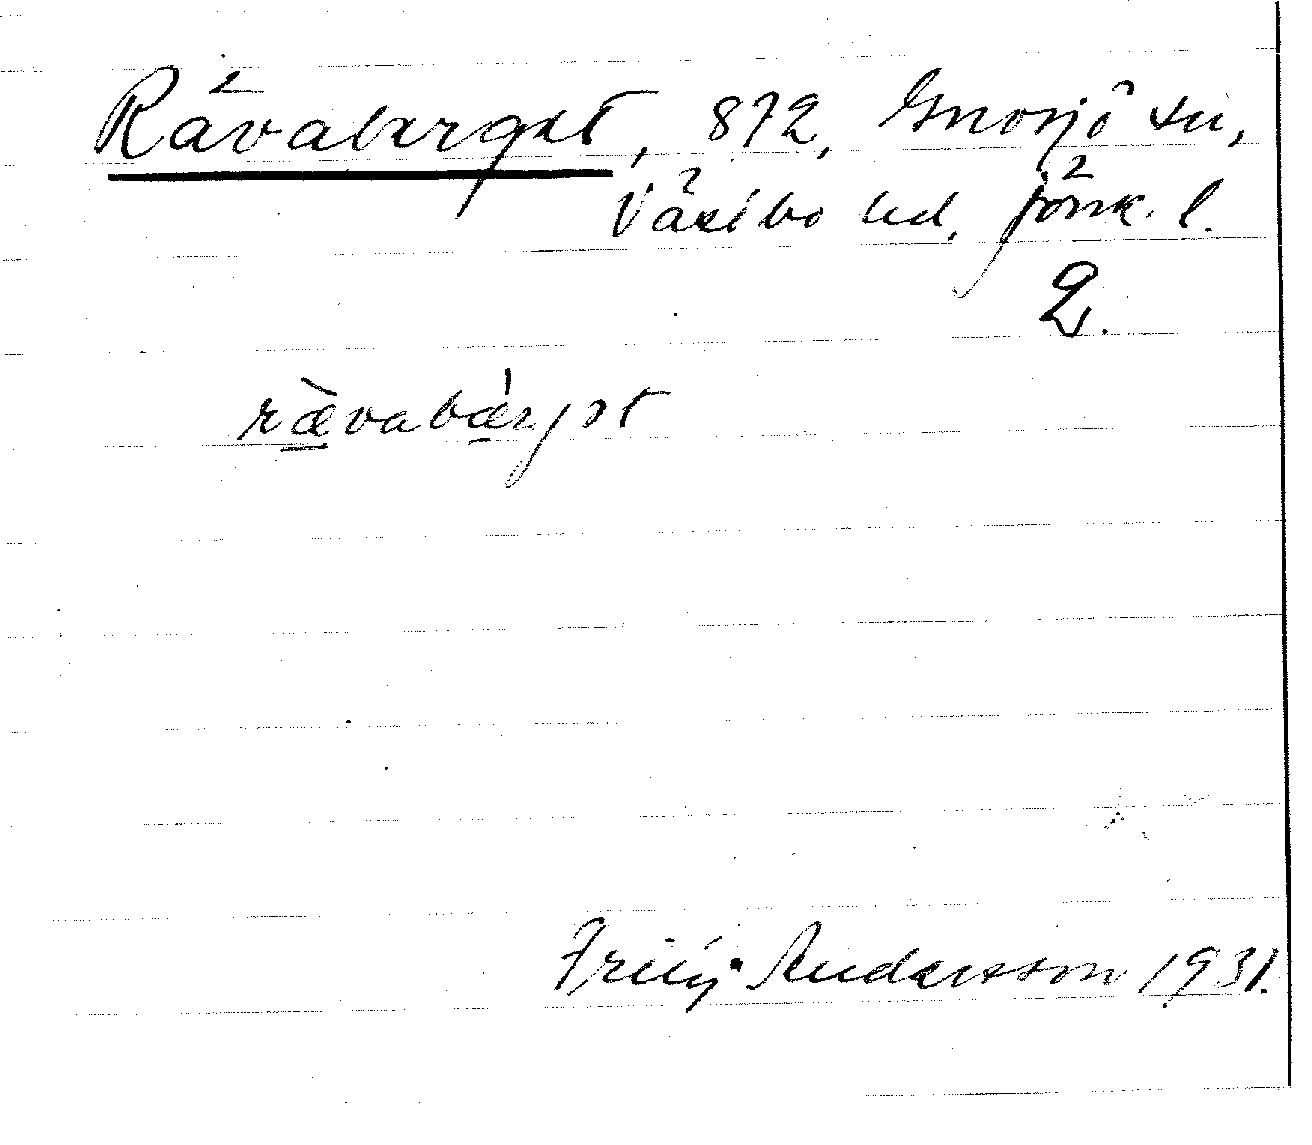 Rävaberget, 872, Gnosjö sn,
Västbo hd, Jönk. l.
2.
rævabærjət
Andersson 1931.